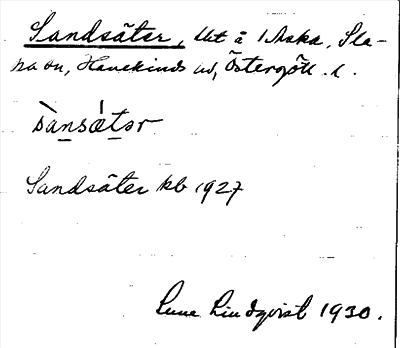 Sandsäter, Ut å 1 Aska, Sla-
ka sn, Hanekinds hd, Östergötl. l.
sànsǽtər
Sandsäter kb 1927
Sune Lindqvist 1930.